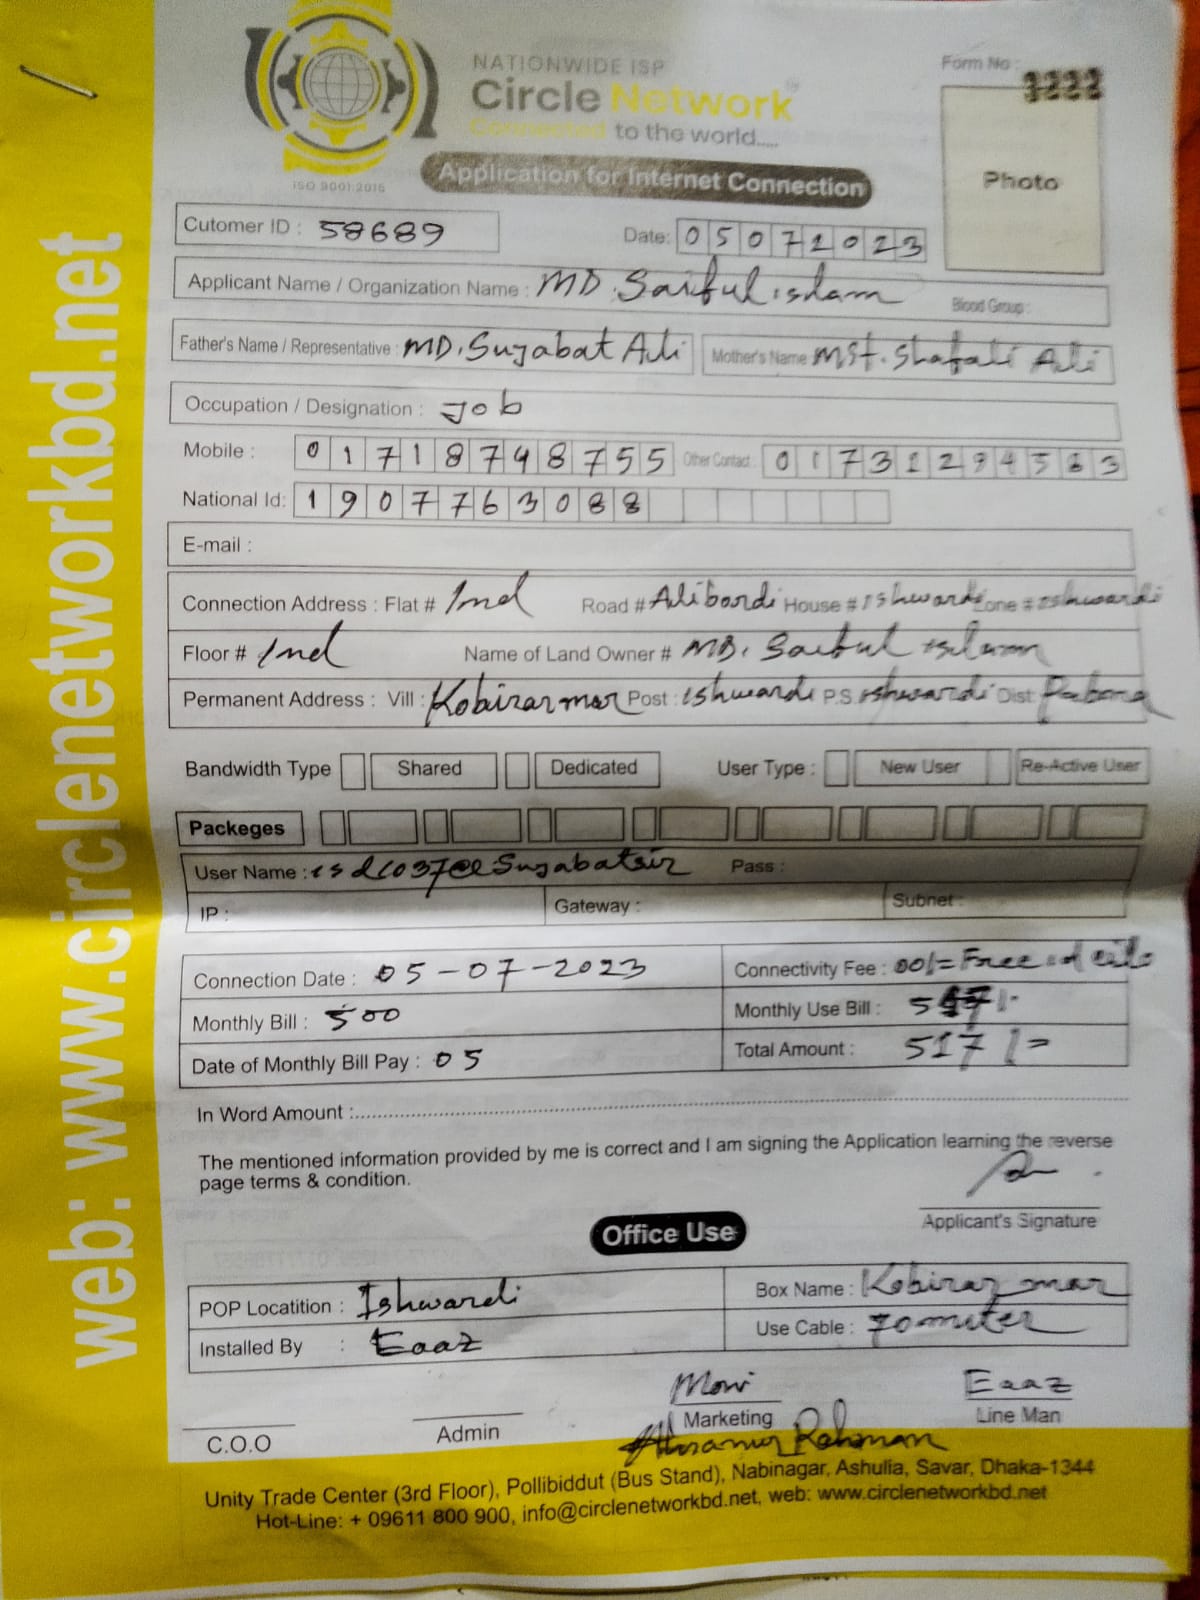 NATIONWIDE ISP
Circle Network
Connected to the world.....
ISO 9001:2015
Form No :
Photo
Application for Internet Connection
Cutomer ID : 58689
Date: 05072023
Applicant Name / Organization Name : MD. Saiful islam Blood Group :
Father's Name / Representative : MD. Sujabat Ali Mother's Name MSt. Shafali Ali
Occupation / Designation : Job
Mobile : 01718748755 Other Contact :
National Id: 1907763088
E-mail :
Connection Address : Flat # Road # Alibordi House # Ishwardi Zone # Ishwardi
Floor # Name of Land Owner # MD. Saiful islam
Permanent Address : Vill : Kobirazmar Post : Ishwardi P.S Ishwardi Dist Pabona
Bandwidth Type Shared Dedicated User Type : New User Re-Active User
Packeges
User Name : Pass :
IP : Gateway : Subnet :
Connection Date : 05-07-2023 Connectivity Fee : 00/= Free
Monthly Bill : 500 Monthly Use Bill :
Date of Monthly Bill Pay : 05 Total Amount : 517/=
In Word Amount :
The mentioned information provided by me is correct and I am signing the Application learning the reverse
page terms & condition.
Applicant's Signature
Office Use
POP Locatition : Ishwardi Box Name : Kobiraz mar
Installed By : Eaaz Use Cable : 70 miter
Moni Eaaz
C.O.O Admin Marketing Line Man
Ahsanur Rahman
Unity Trade Center (3rd Floor), Pollibiddut (Bus Stand), Nabinagar, Ashulia, Savar, Dhaka-1344
Hot-Line: + 09611 800 900, info@circlenetworkbd.net, web: www.circlenetworkbd.net
web: www.circlenetworkbd.net